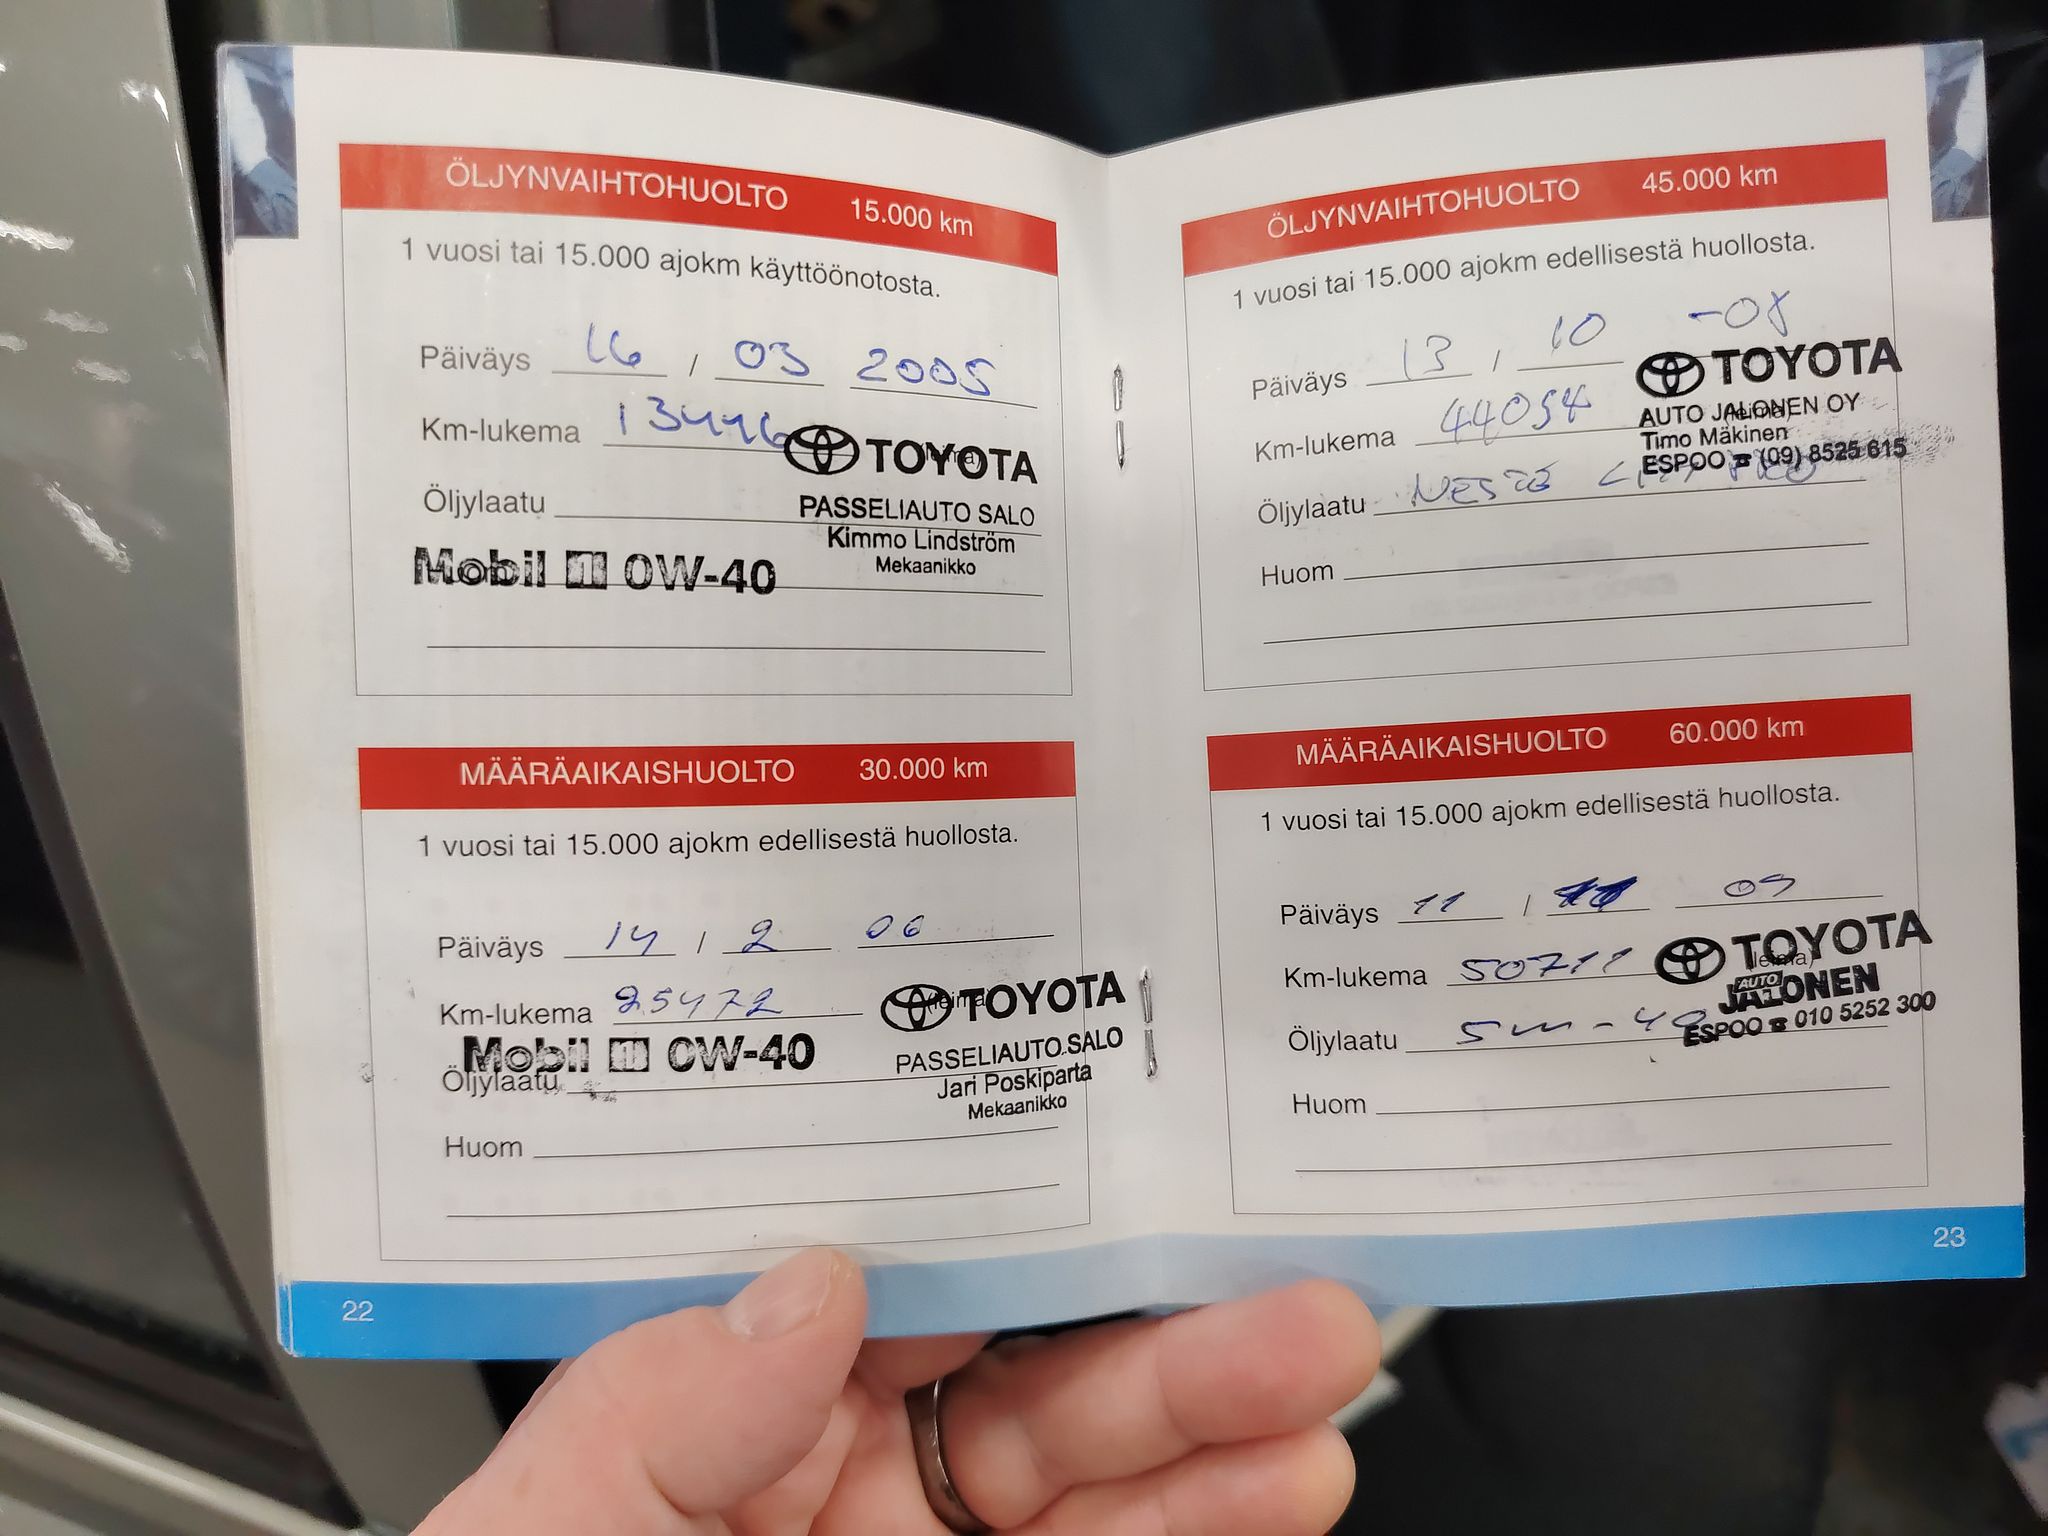 ÖLJYNVAIHTOHUOLTO 15.000 km
1 vuosi tai 15.000 ajokm käyttöönotosta.
Päiväys 16 / 03 2005
Km-lukema 13446
TOYOTA
Öljylaatu
PASSELIAUTO SALO
Kimmo Lindström
Mekaanikko
Mobil 1 0W-40
MÄÄRÄAIKAISHUOLTO 30.000 km
1 vuosi tai 15.000 ajokm edellisestä huollosta.
Päiväys 14 / 2 06
Km-lukema 25472
(leima)
TOYOTA
Mobil 1 0W-40
Öljylaatu
PASSELIAUTO SALO
Jari Poskiparta
Mekaanikko
Huom
22
ÖLJYNVAIHTOHUOLTO 45.000 km
1 vuosi tai 15.000 ajokm edellisestä huollosta.
Päiväys 13 / 10 -08
TOYOTA
Km-lukema 44054
(leima)
AUTO JALONEN OY
Timo Mäkinen
ESPOO ☎ (09) 8525 615
Öljylaatu NESTE
Huom
MÄÄRÄAIKAISHUOLTO 60.000 km
1 vuosi tai 15.000 ajokm edellisestä huollosta.
Päiväys 11 / 09
Km-lukema 50711
(leima)
TOYOTA
AUTO
JALONEN
ESPOO ☎ 010 5252 300
Öljylaatu 5w-40
Huom
23